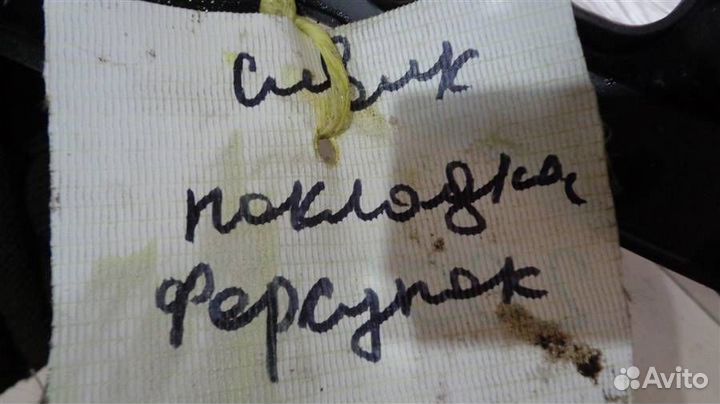 сивик
покладка
форсунок
Avito